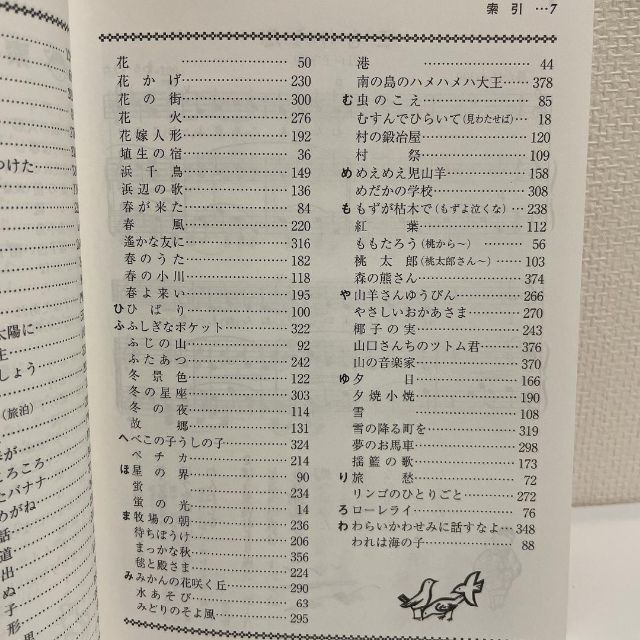 索引…7
花……50
花かげ……230
花の街……300
花火……276
花嫁人形……192
埴生の宿……36
浜千鳥……149
浜辺の歌……136
春が来た……84
春風……220
遙かな友に……316
春のうた……182
春の小川……118
春よ来い……195
ひ ひばり……100
ふ ふしぎなポケット……322
ふじの山……92
ふたあつ……242
冬景色……122
冬の星座……303
冬の夜……114
故郷……131
へ べこの子うしの子……324
ペチカ……214
ほ 星の界……90
蛍……234
蛍の光……14
ま 牧場の朝……236
待ちぼうけ……206
まっかな秋……356
毬と殿さま……224
み みかんの花咲く丘……290
水あそび……63
みどりのそよ風……295
港……44
南の島のハメハメハ大王……378
む 虫のこえ……85
むすんでひらいて(見わたせば)…18
村の鍛冶屋……120
村祭……109
め めえめえ児山羊……158
めだかの学校……308
も もずが枯木で(もずよ泣くな)…238
紅葉……112
ももたろう(桃から〜)……56
桃太郎(桃太郎さん〜)……103
森の熊さん……374
や 山羊さんゆうびん……266
やさしいおかあさま……270
椰子の実……243
山口さんちのツトム君……376
山の音楽家……370
ゆ 夕日……166
夕焼小焼……190
雪……108
雪の降る町を……319
夢のお馬車……298
揺籃の歌……173
り 旅愁……72
リンゴのひとりごと……272
ろ ローレライ……76
わ わらいかわせみに話すなよ…348
われは海の子……88
つけた
太陽に
生
しょう
(旅泊)
が
ころころ
たバナナ
めがね
話
道
出
ぬ
子
形